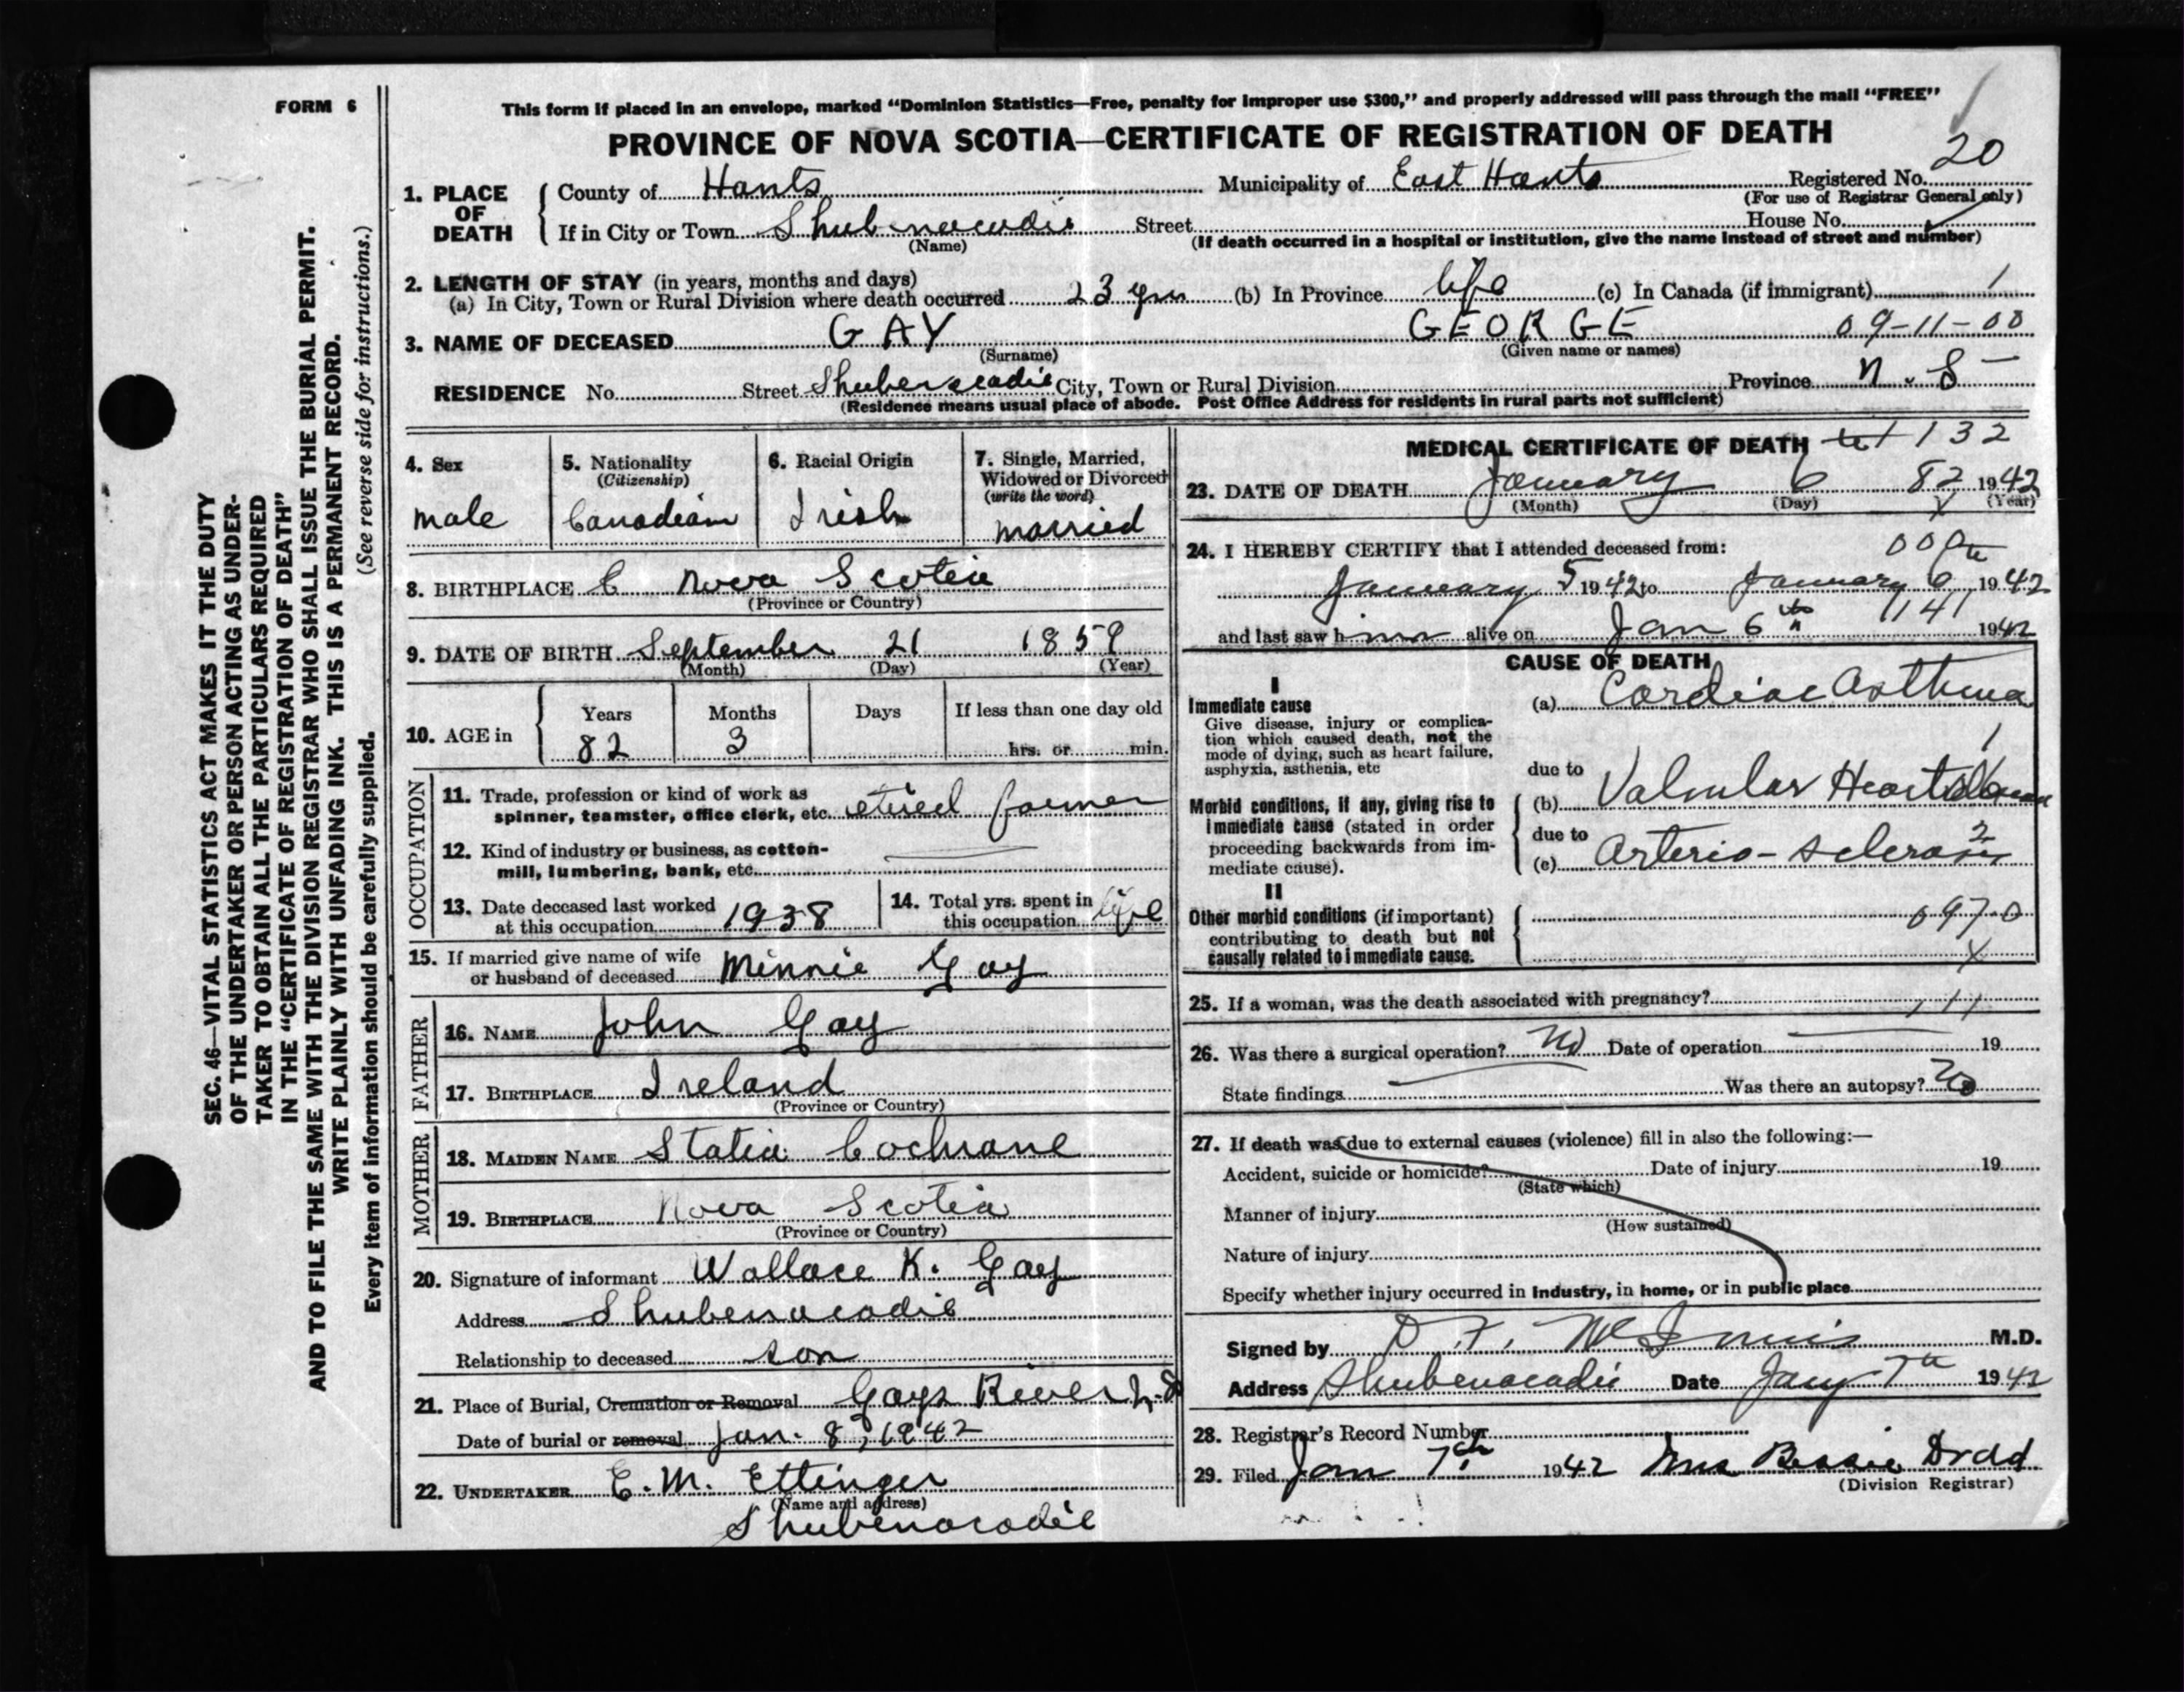 FORM 6
This form if placed in an envelope, marked “Dominion Statistics—Free, penalty for improper use $300,” and properly addressed will pass through the mail “FREE”
PROVINCE OF NOVA SCOTIA—CERTIFICATE OF REGISTRATION OF DEATH
SEC. 46—VITAL STATISTICS ACT MAKES IT THE DUTY
OF THE UNDERTAKER OR PERSON ACTING AS UNDER-
TAKER TO OBTAIN ALL THE PARTICULARS REQUIRED
IN THE “CERTIFICATE OF REGISTRATION OF DEATH”
AND TO FILE THE SAME WITH THE DIVISION REGISTRAR WHO SHALL ISSUE THE BURIAL PERMIT.
WRITE PLAINLY WITH UNFADING INK. THIS IS A PERMANENT RECORD.
(See reverse side for instructions.)
Every item of information should be carefully supplied.
1. PLACE OF DEATH
County of Hants Municipality of East Hants Registered No. 20
(For use of Registrar General only)
If in City or Town Shubenacadie Street House No.
(Name) (If death occurred in a hospital or institution, give the name instead of street and number)
2. LENGTH OF STAY (in years, months and days)
(a) In City, Town or Rural Division where death occurred 23 yrs (b) In Province life (c) In Canada (if immigrant) 1
3. NAME OF DECEASED GAY GEORGE 09-11-00
(Surname) (Given name or names)
RESIDENCE No. Street Shubenacadie City, Town or Rural Division Province N.S
(Residence means usual place of abode. Post Office Address for residents in rural parts not sufficient)
4. Sex male
5. Nationality (Citizenship) Canadian
6. Racial Origin Irish
7. Single, Married, Widowed or Divorced (write the word) married
8. BIRTHPLACE Nova Scotia
(Province or Country)
9. DATE OF BIRTH September 21 1859
(Month) (Day) (Year)
10. AGE in Years Months Days If less than one day old
82 3 hrs. or min.
OCCUPATION
11. Trade, profession or kind of work as
spinner, teamster, office clerk, etc. retired farmer
12. Kind of industry or business, as cotton-
mill, lumbering, bank, etc.
13. Date deceased last worked
at this occupation 1938
14. Total yrs. spent in
this occupation life
15. If married give name of wife
or husband of deceased Minnie Gay
FATHER
16. NAME John Gay
17. BIRTHPLACE Ireland
(Province or Country)
MOTHER
18. MAIDEN NAME Statia Cochrane
19. BIRTHPLACE Nova Scotia
(Province or Country)
20. Signature of informant Wallace K. Gay
Address Shubenacadie
Relationship to deceased son
21. Place of Burial, Cremation or Removal Gays River N.S
Date of burial or removal Jan. 8, 1942
22. UNDERTAKER E. M. Ettinger
(Name and address)
Shubenacadie
MEDICAL CERTIFICATE OF DEATH 132
23. DATE OF DEATH January 6 82 1942
(Month) (Day) (Year)
24. I HEREBY CERTIFY that I attended deceased from:
January 5 1942 to January 6 1942
and last saw him alive on Jan 6th 1141 1942
CAUSE OF DEATH
I
Immediate cause
Give disease, injury or complica-
tion which caused death, not the
mode of dying, such as heart failure,
asphyxia, asthenia, etc
(a) Cardiac Asthma
1
due to
Morbid conditions, if any, giving rise to
immediate cause (stated in order
proceeding backwards from im-
mediate cause).
(b) Valvular Heart disease
due to
2
(c) Arterio-sclerosis
II
Other morbid conditions (if important)
contributing to death but not
causally related to immediate cause.
097.0
X
25. If a woman, was the death associated with pregnancy?
26. Was there a surgical operation? No Date of operation 19
State findings Was there an autopsy? No
27. If death was due to external causes (violence) fill in also the following:—
Accident, suicide or homicide? Date of injury 19
(State which)
Manner of injury
(How sustained)
Nature of injury
Specify whether injury occurred in industry, in home, or in public place
Signed by D. F. McInnis M.D.
Address Shubenacadie Date Jany 7th 1942
28. Registrar's Record Number
29. Filed Jan 7th 1942 Mrs Bessie Dodd
(Division Registrar)